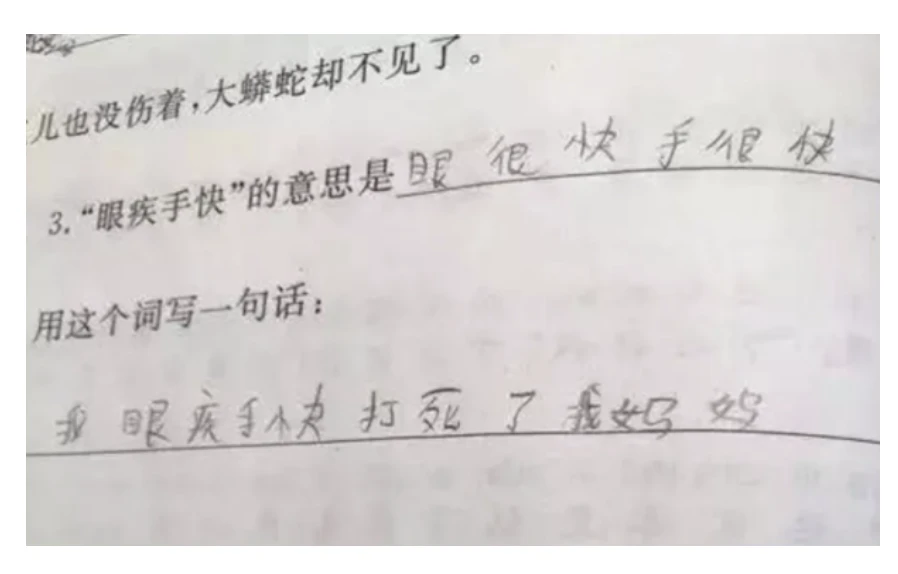 儿也没伤着，大蟒蛇却不见了。
3.“眼疾手快”的意思是眼很快手很快
用这个词写一句话：
我眼疾手快打死了我妈妈